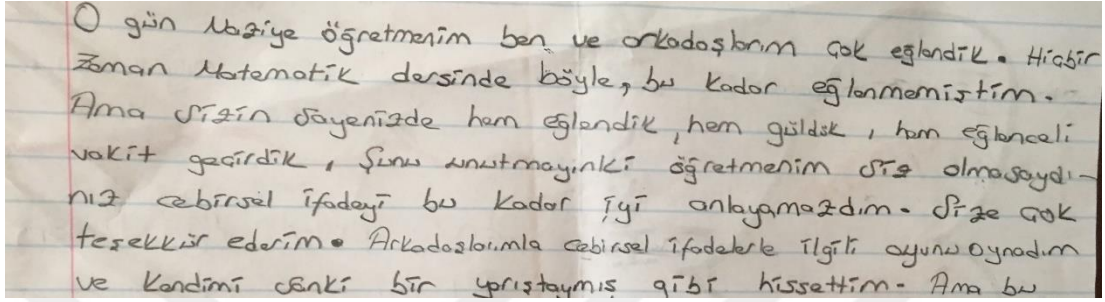 O gün Naziye öğretmenim ben ve arkadaşlarım çok eğlendik. Hiçbir
zaman Matematik dersinde böyle, bu kadar eğlenmemiştim.
Ama sizin sayenizde hem eğlendik, hem güldük, hem eğlenceli
vakit geçirdik, Şunu unutmayınki öğretmenim siz olmasaydı-
nız cebirsel ifadeyi bu kadar iyi anlayamazdım. Size çok
teşekkür ederim. Arkadaşlarımla cebirsel ifadelerle ilgili oyunu oynadım
ve kendimi sanki bir yarıştaymış gibi hissettim. Ama bu